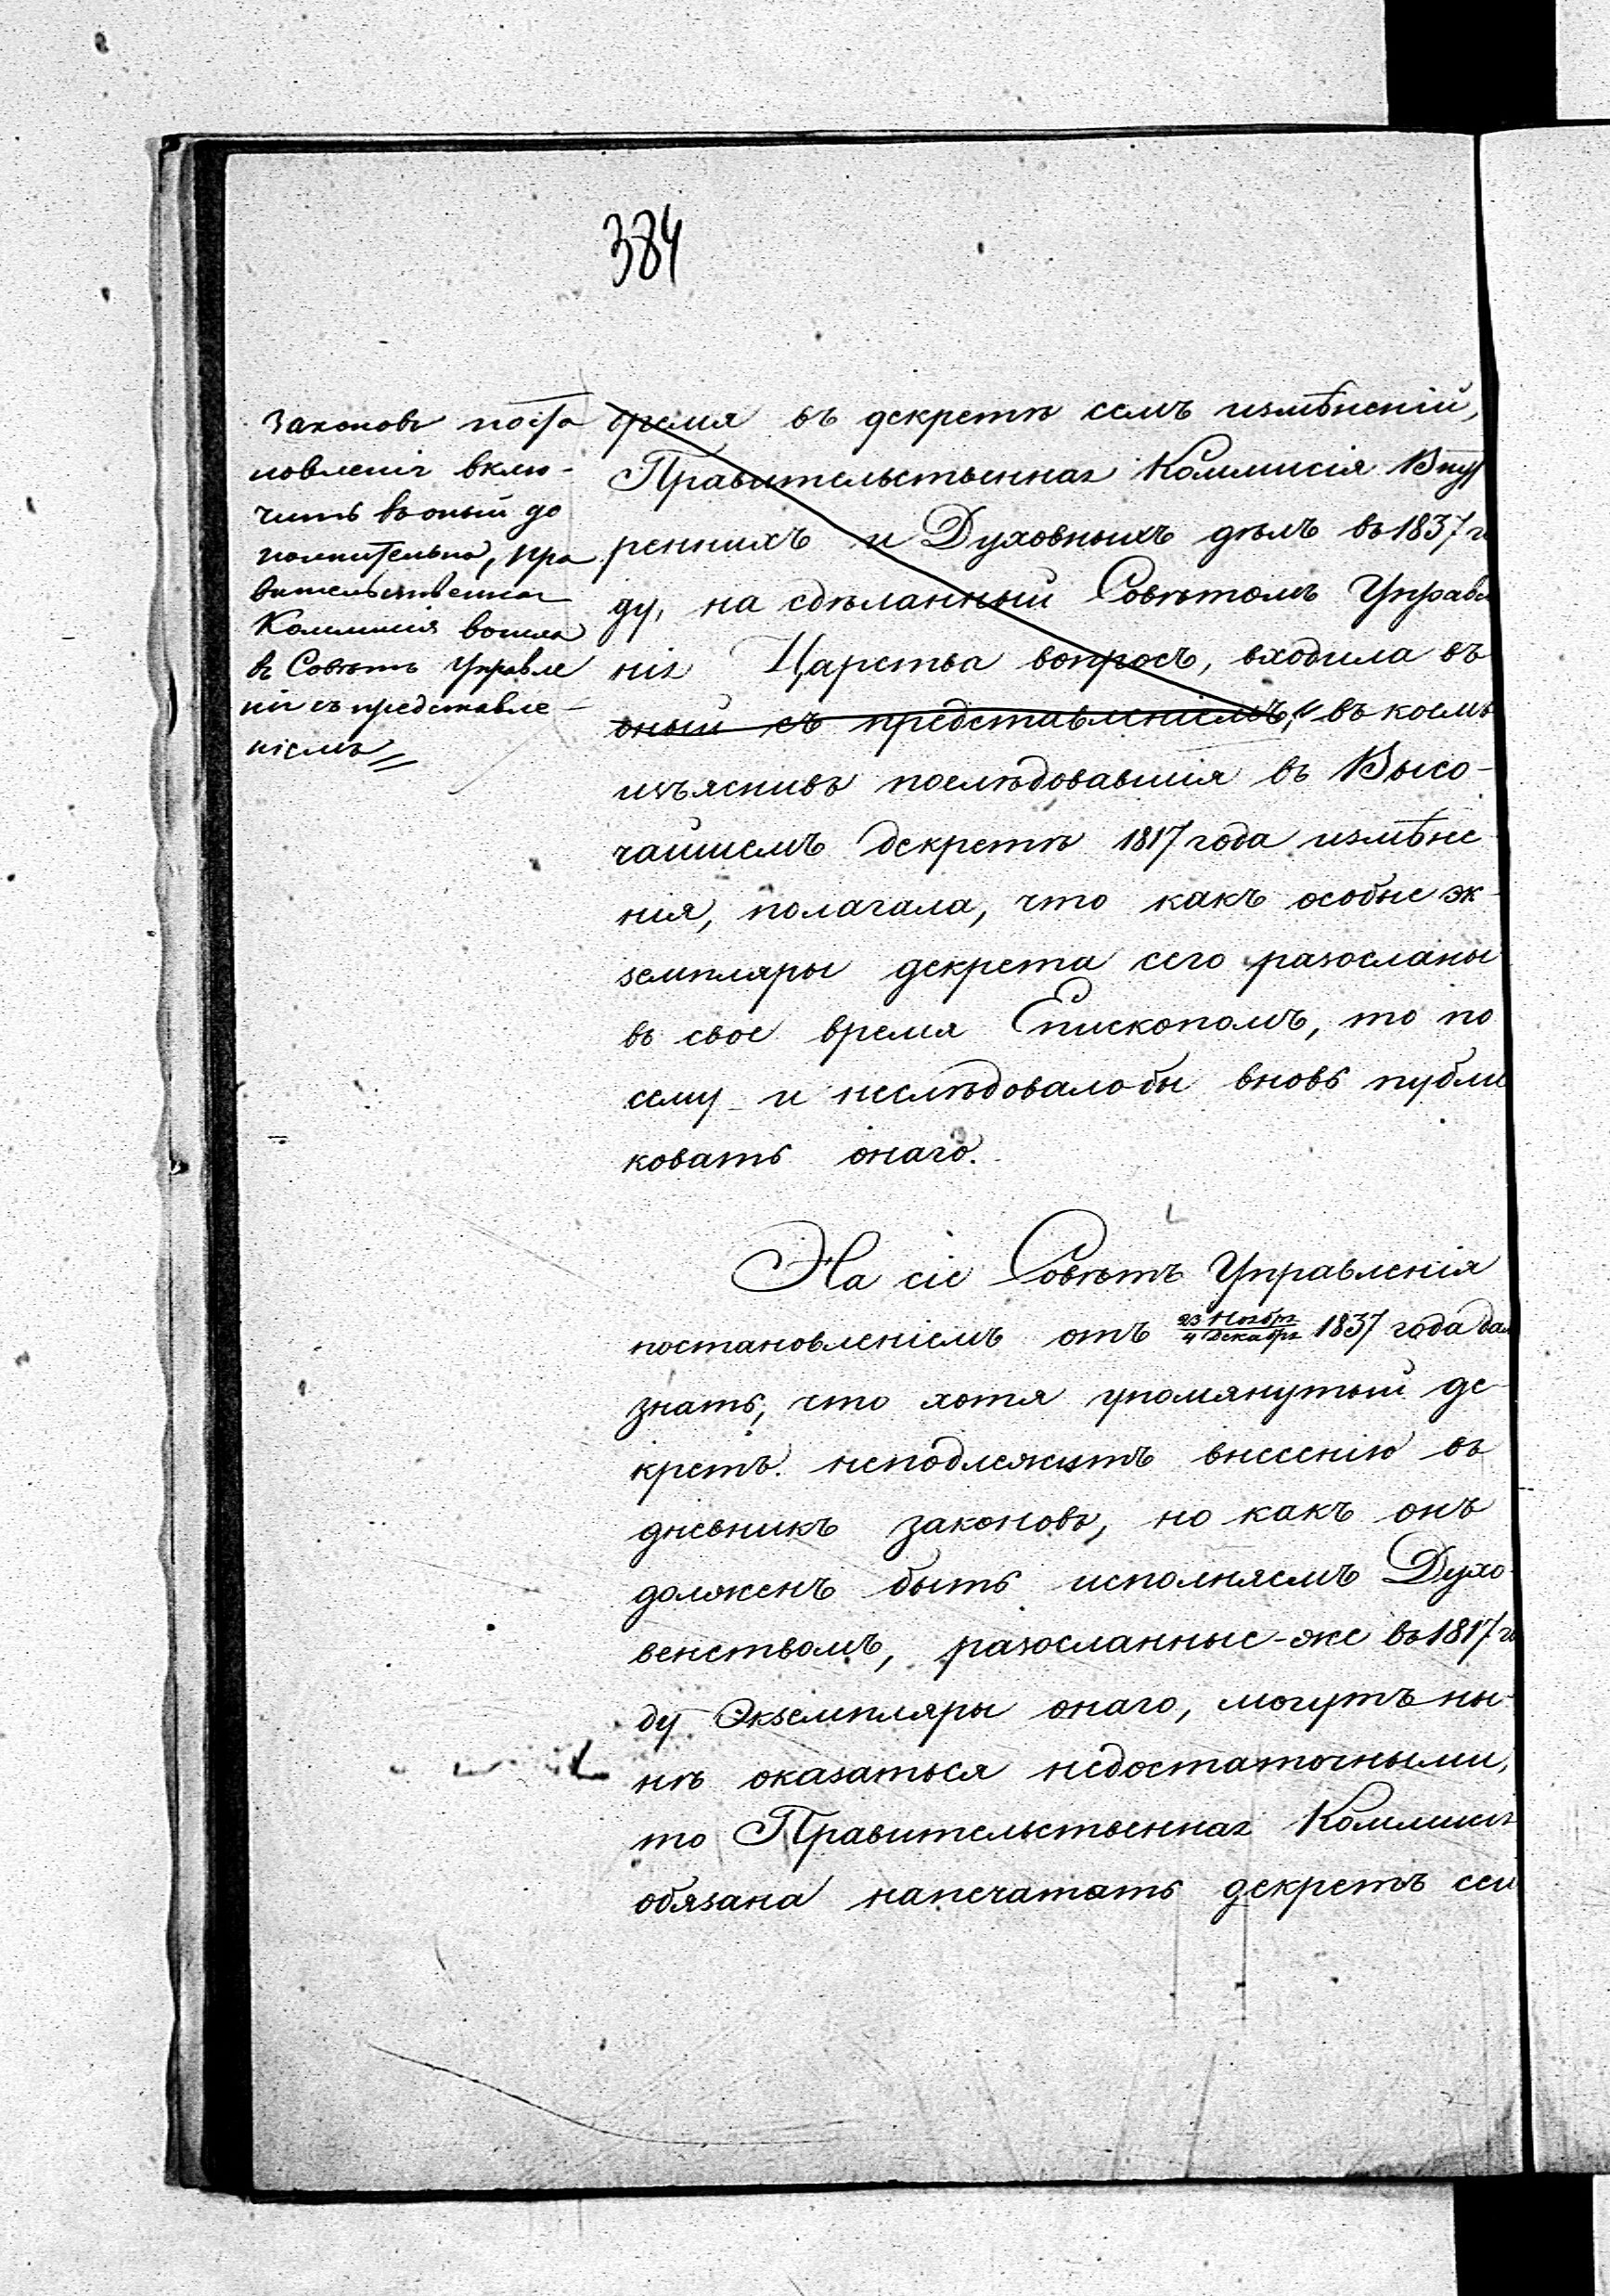 384
законовъ поста
новленія вклю-
чить въ оный до
полнительно, Пра
вительственная
Коммисія вошла
въ Совѣтъ Управле
нія съ представле-
ніемъ
время въ декретѣ семъ измѣненій,
Правительственная Коммисія Внут
реннихъ и Духовныхъ дѣлъ въ 1837 г
ду, на сдѣланный Совѣтомъ Управл
нія Царства вопросъ, входила въ
оный съ представленіемъ, въ коемъ
изъяснивъ послѣдовавшія въ Высо-
чайшемъ декретѣ 1817 года измѣне
нія, полагала, что какъ особые эк-
земпляры декрета сего разосланы
въ свое время Епископомъ, то по
сему и неслѣдовало бы вновь публи
ковать онаго.
На сіе Совѣтъ Управленія
постановленіемъ отъ 23 Ноября / 4 Декабря 1837 года дал
знать, что хотя упомянутый де-
кретъ неподлежитъ внесенію въ
дневникъ законовъ, но какъ онъ
долженъ быть исполняемъ Духо-
венствомъ, разосланные-же въ 1817 го
ду Экземпляры онаго, могутъ ны-
нѣ оказаться недостаточными,
то Правительственная Коммисія
обязана напечатать декретъ сей